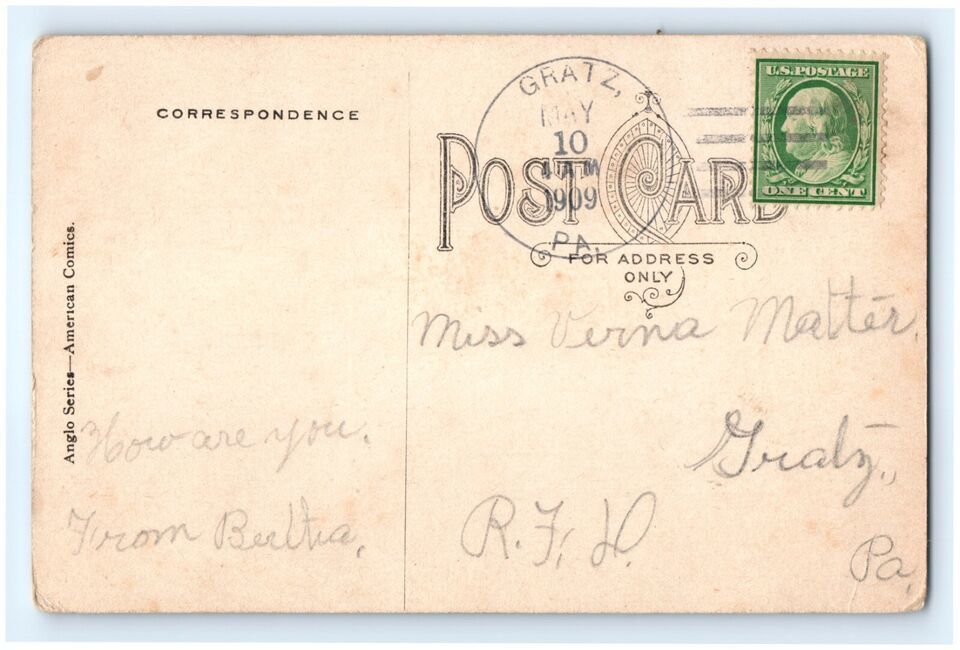 CORRESPONDENCE
Anglo Series—American Comics.
How are you.
From Bertha,
GRATZ,
MAY
10
AM
1909
PA.
U.S. POSTAGE
ONE CENT
POST CARD
FOR ADDRESS
ONLY
Miss Verna Matter,
Gratz,
R.F.D.
Pa,